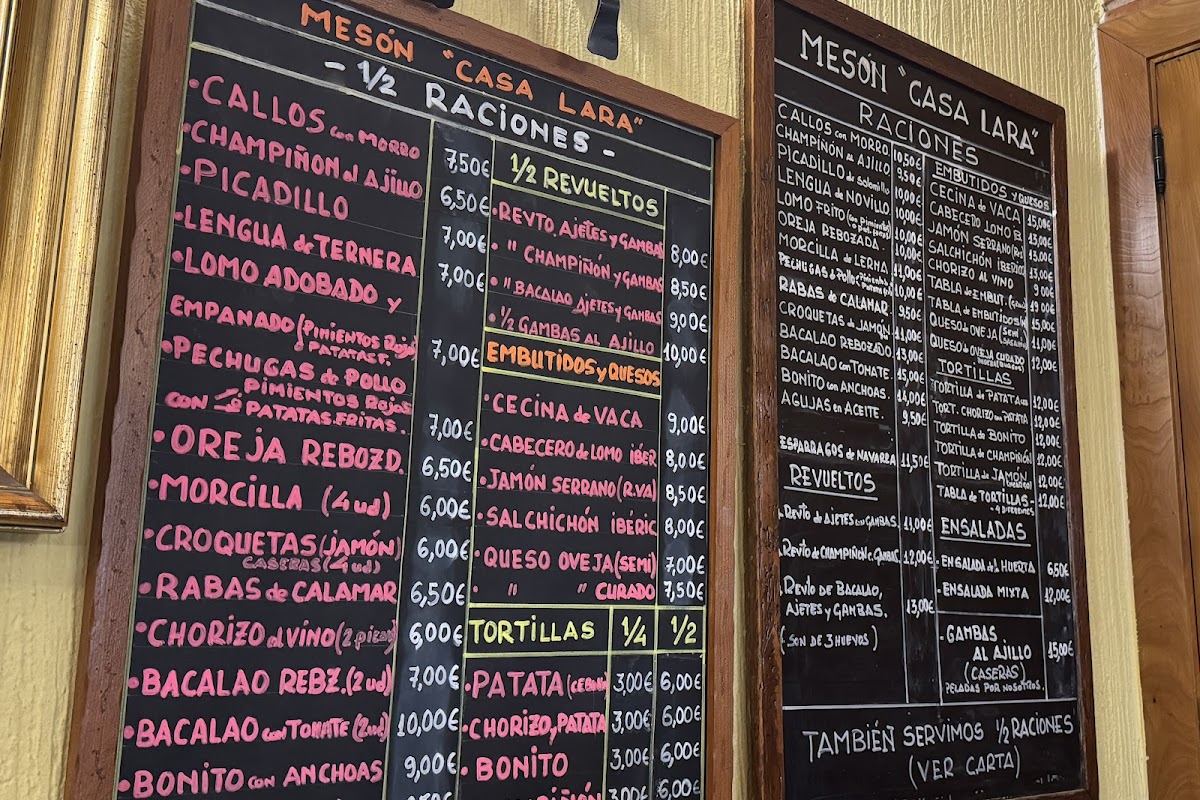 MESÓN "CASA LARA"
- 1/2 RACIONES -
• CALLOS con MORRO 7,50€
• CHAMPIÑON al AJILLO 6,50€
• PICADILLO 7,00€
• LENGUA de TERNERA 7,00€
• LOMO ADOBADO y
EMPANADO (Pimientos Rojos
PATATAS F. 7,00€
• PECHUGAS de POLLO
PIMIENTOS Rojos
CON PATATAS FRITAS. 7,00€
• OREJA REBOZD. 6,50€
• MORCILLA (4 ud) 6,00€
• CROQUETAS (JAMÓN) 6,00€
CASERAS (4 ud)
• RABAS de CALAMAR 6,50€
• CHORIZO al VINO 6,00€
• BACALAO REBZ. (2 ud) 7,00€
• BACALAO con TOMATE (2 ud) 10,00€
• BONITO con ANCHOAS 9,00€
1/2 REVUELTOS
• REVTO, AJETES y GAMBAS 8,00€
• " CHAMPIÑÓN y GAMBAS 8,50€
• " BACALAO AJETES y GAMBAS 9,00€
• 1/2 GAMBAS AL AJILLO 10,00€
EMBUTIDOS y QUESOS
• CECINA de VACA 9,00€
• CABECERO de LOMO IBER 8,00€
• JAMÓN SERRANO (R.VA) 8,50€
• SALCHICHÓN IBÉRIC 8,00€
• QUESO OVEJA (SEMI) 7,00€
• " " CURADO 7,50€
TORTILLAS 1/4 1/2
• PATATA 3,00€ 6,00€
• CHORIZO y PATATA 3,00€ 6,00€
• BONITO 3,00€ 6,00€
CHAMPIÑÓN 3,00€ 6,00€
MESÓN "CASA LARA"
RACIONES
CALLOS con MORRO 10,50€
CHAMPIÑÓN al AJILLO 9,50€
PICADILLO de Solomillo 10,00€
LENGUA de NOVILLO 10,00€
LOMO FRITO 10,00€
OREJA REBOZADA. 10,00€
MORCILLA de LERMA 11,00€
PECHUGAS de Pollo 10,00€
RABAS de CALAMAR 9,50€
CROQUETAS de JAMÓN 11,00€
BACALAO REBOZADO 13,00€
BACALAO con TOMATE. 15,00€
BONITO con ANCHOAS. 14,00€
AGUJAS en ACEITE. 9,50€
ESPARRAGOS de NAVARRA 11,50€
REVUELTOS
• REVTO de AJETES con GAMBAS. 11,00€
• REVTO de CHAMPIÑON c. GAMBAS. 12,00€
• REVTO DE BACALAO,
AJETES y GAMBAS. 13,00€
(SON DE 3 HUEVOS)
EMBUTIDOS y QUESOS
CECINA de VACA 15,00€
CABECERO LOMO B. 13,00€
JAMÓN SERRANO 15,00€
SALCHICHÓN IBÉRICO 13,00€
CHORIZO AL VINO 9,00€
TABLA de EMBUT. 19,00€
TABLA de EMBUTIDOS 15,00€
QUESO de OVEJA 11,00€
QUESO de OVEJA CURADO 12,00€
TORTILLAS
TORTILLA de PATATA 12,00€
TORT. CHORIZO con PATATA 12,00€
TORTILLA de BONITO 12,00€
TORTILLA de CHAMPIÑÓN 12,00€
TORTILLA de JAMÓN 12,00€
TABLA de TORTILLAS - 12,00€
4 DIFERENTES
ENSALADAS
• ENSALADA de la HUERTA 6,50€
• ENSALADA MIXTA 12,00€
• GAMBAS
AL AJILLO 15,00€
(CASERAS)
PELADAS POR NOSOTROS.
TAMBIÉN SERVIMOS 1/2 RACIONES
(VER CARTA)